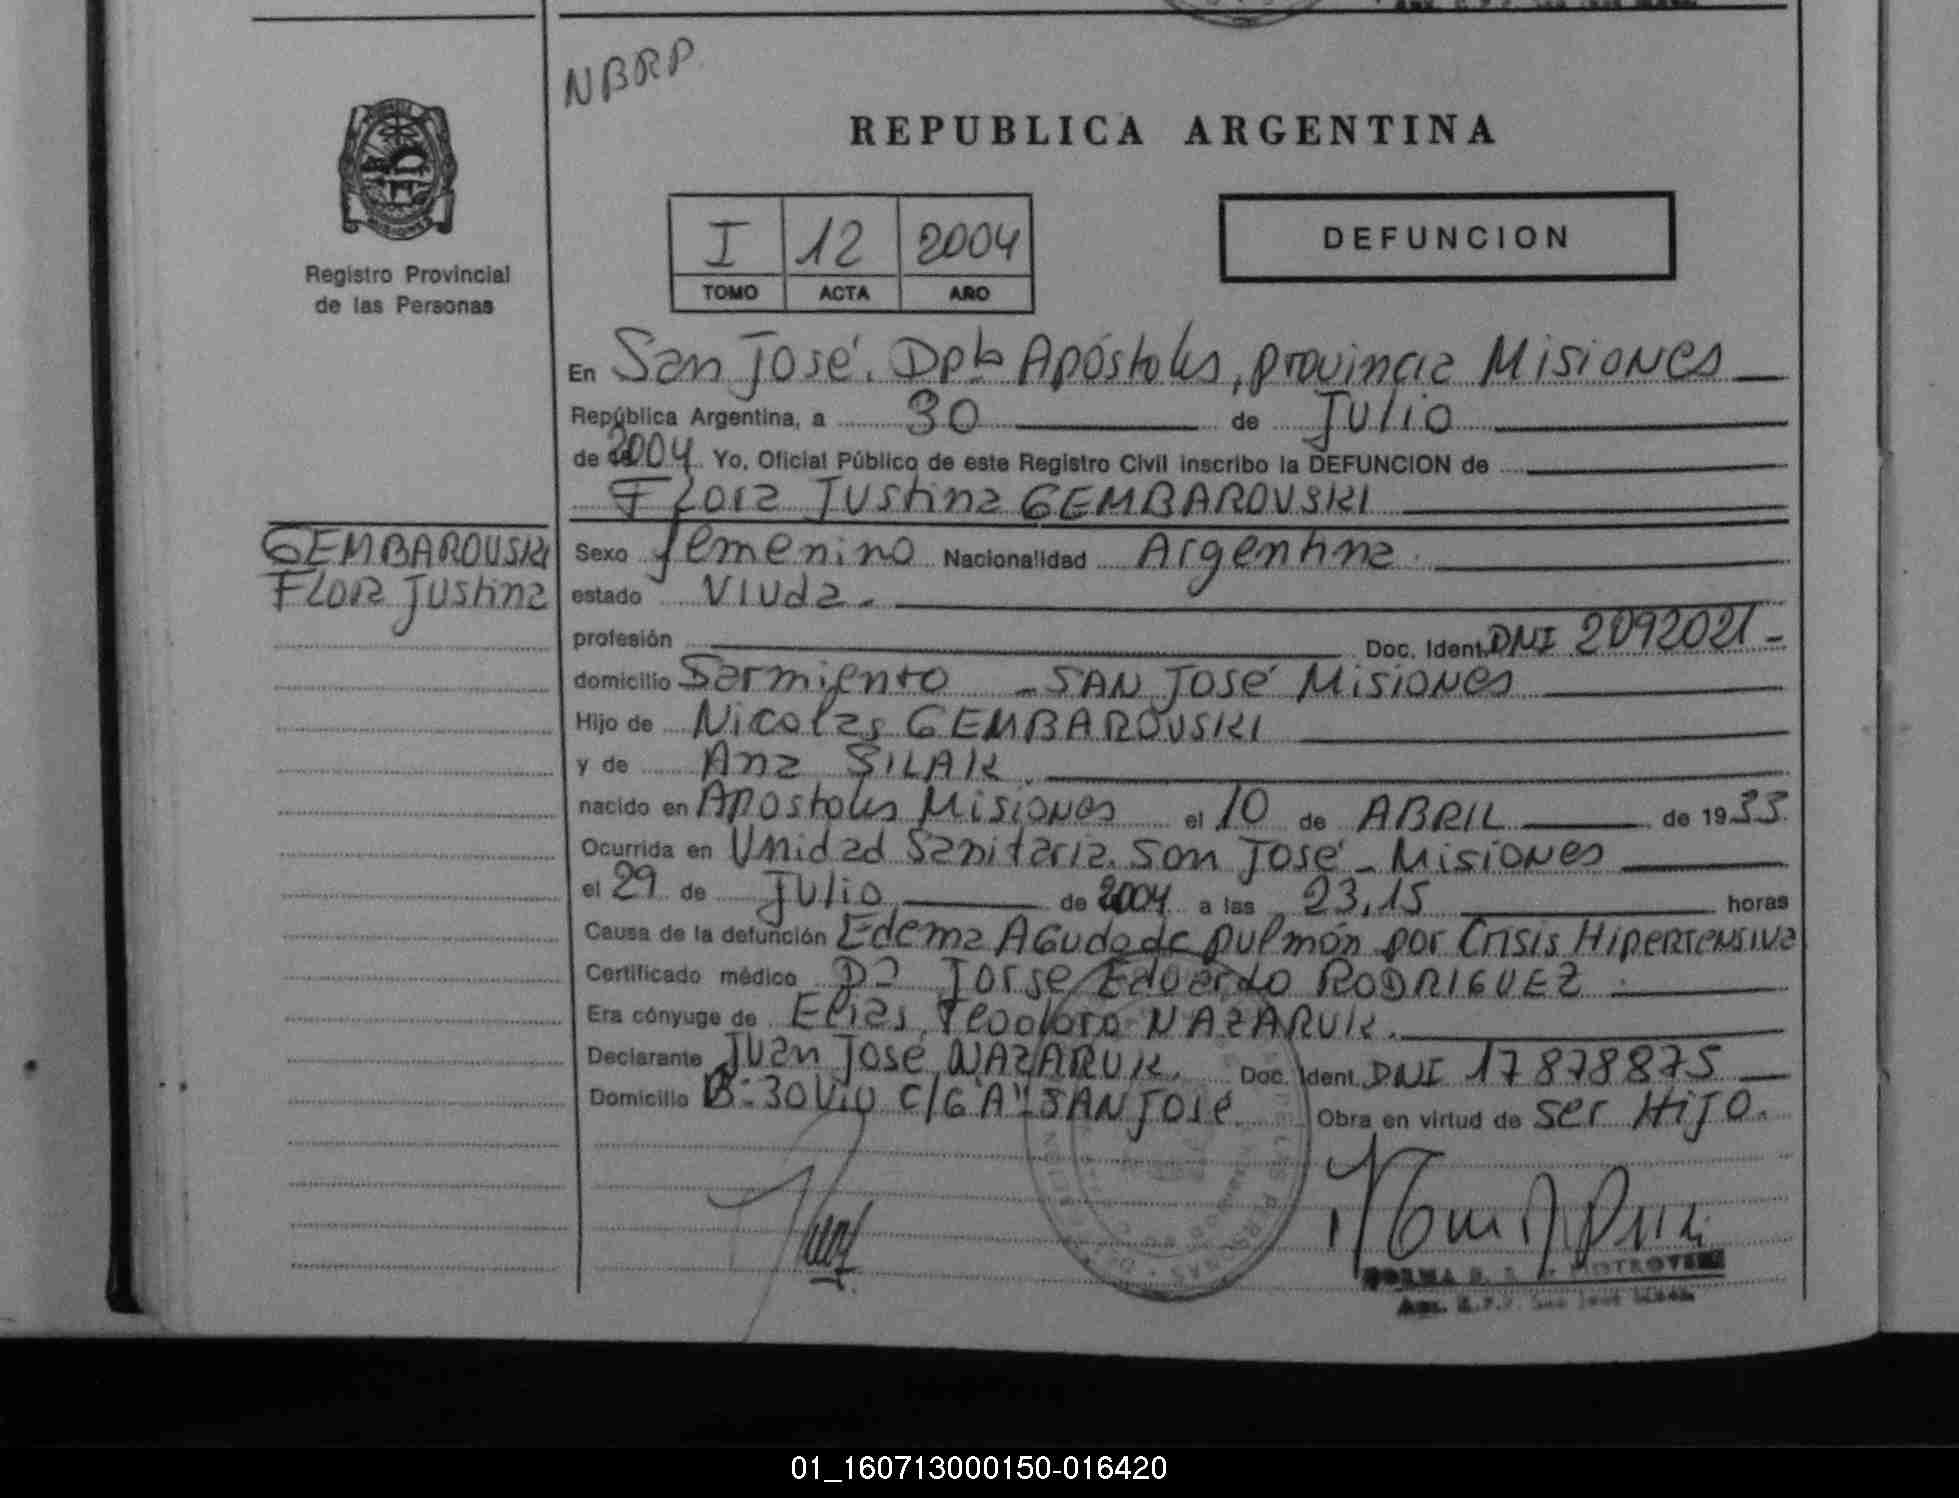 NBRP
REPUBLICA ARGENTINA
I 12 2004
TOMO ACTA AÑO
DEFUNCION
Registro Provincial
de las Personas
En San José. Dpto Apóstoles, provincia Misiones
República Argentina, a 30 de Julio
de 2004 Yo, Oficial Público de este Registro Civil inscribo la DEFUNCION de
Flora Justina GEMBAROVSKI
GEMBAROVSKI
Flora Justina
Sexo femenino Nacionalidad Argentina.
estado Viuda.
profesión Doc. Ident. DNI 2092021-
domicilio Sarmiento - SAN José Misiones
Hijo de Nicolas GEMBAROVSKI
y de Ana SILAK.
nacido en Apostoles Misiones el 10 de ABRIL de 1933.
Ocurrida en Unidad Sanitaria. San José - Misiones
el 29 de Julio de 2004 a las 23,15 horas
Causa de la defunción Edema Agudo de pulmón por Crisis Hipertensiva
Certificado médico Dr Jorge Eduardo RODRIGUEZ.
Era cónyuge de Elias Teodoro NAZARUK.
Declarante Juan José NAZARUK. Doc. Ident. DNI 17878875
Domicilio B: 30 Viv C/6 "A" - SAN José. Obra en virtud de ser Hijo.
01_160713000150-016420